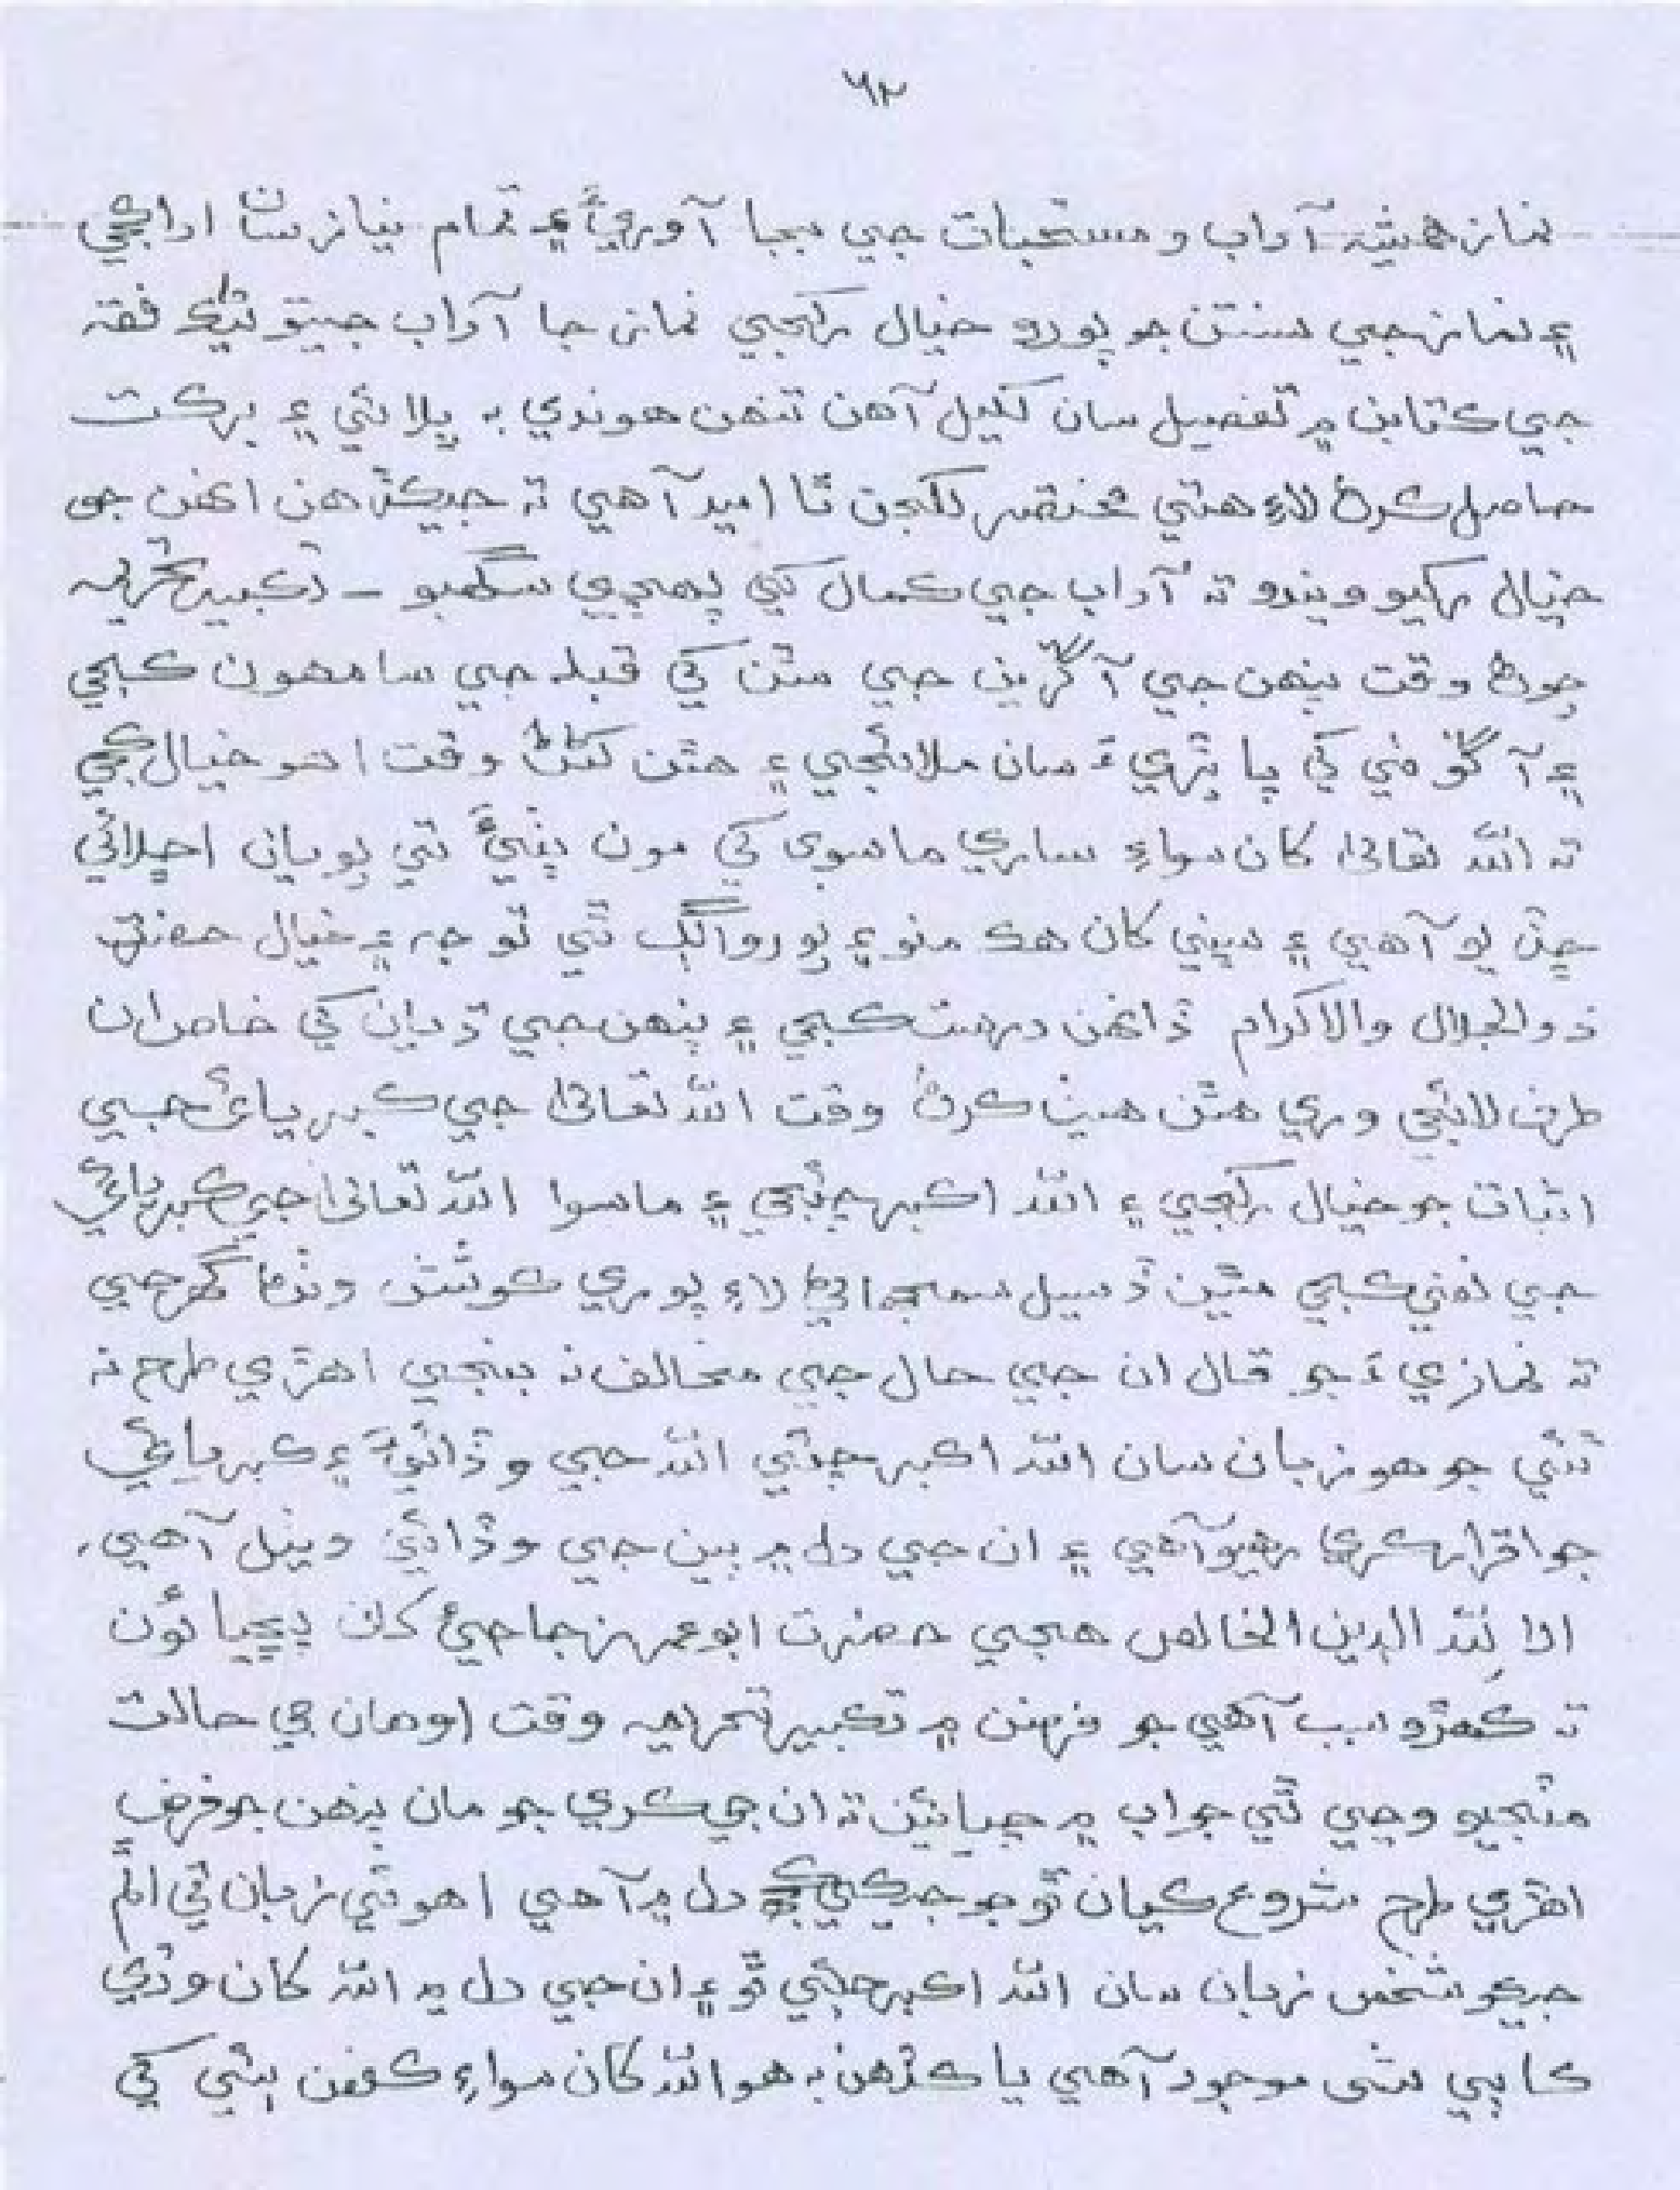 ٦٢
نماز هميشہ آداب و مستحبات جي بجا آوريءَ ۽ تمام نياز سان ادا ڪجي
۽ نماز جي سنتن جو پورو خيال رکجي نماز جا آداب جيتوڻيڪ فقہ
جي ڪتابن ۾ تفصيل سان لکيل آهن تنهن هوندي بہ ڀلائي ۽ برڪت
حاصل ڪرڻ لاءِ هتي مختصر لکجن ٿا اميد آهي تہ جيڪڏهن انهن جو
خيال رکيو ويندو تہ آداب جي ڪمال کي پهچي سگهبو ـ تڪبير تحريمہ
چوڻ وقت پنهن جي آڱرين جي مٿن کي قبلہ جي سامهون ڪجي
۽ آڱوٺي کي پاپڙيءَ سان ملائجي ۽ هٿن کڻڻ وقت اهو خيال ڪجي
تہ اللہ تعالىٰ کان سواءِ ساري ماسوى کي مون پٺيءَ تي پويان اڇلائي
ڇڏيو آهي ۽ سڀني کان هڪ منو ۽ پورو الڳ ٿي توجہ ۽ خيال حضرت
ذوالجلال والاڪرام ڏانهن درست ڪجي ۽ پنهن جي ڌيان کي خاص ان
طرف لائجي وري هٿن هيٺ ڪرڻ وقت اللہ تعالىٰ جي ڪبريائي جي
اثبات جو خيال رکجي ۽ اللہ اڪبر چئجي ۽ ماسوا اللہ تعالىٰ جي ڪبريائي
جي نفي ڪجي مٿين ڏسيل سمجهاڻي لاءِ پوري ڪوشش وٺڻ گهرجي
تہ نمازيءَ جو قال ان جي حال جي مخالف نہ بنجي اهڙي طرح نہ
ٿئي جو هو زبان سان اللہ اڪبر چئي اللہ جي وڏائيءَ ۽ ڪبريائي
جو اقرار ڪري رهيو آهي ۽ ان جي دل ۾ ٻين جي وڏائي ويٺل آهي،
الا لِلّٰہ الدين الخالص هجي حضرت ابوعمر زجاجيءَ کان پڇيائون
تہ ڪهڙو سبب آهي جو فرضن ۾ تڪبير تحريميہ وقت اوهان جي حالت
مٽجيو وڃي ٿي جواب ۾ چيائين تہ ان جي ڪري جو مان پنهن جو فرض
اهڙي طرح شروع ڪيان ٿو جو جيڪي دل ۾ آهي اهو ئي زبان تي
جيڪو شخص زبان سان اللہ اڪبر چئي ٿو ۽ ان جي دل ۾ اللہ کان وڏي
ڪا ٻي شى موجود آهي يا ڪڏهن بہ هو اللہ کان سواءِ ڪنهن ٻئي کي